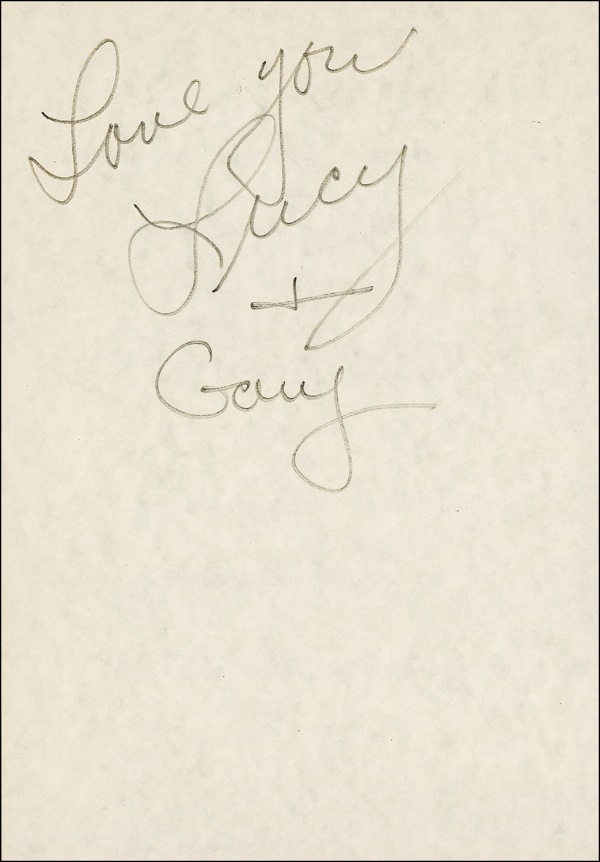 Love you
Lucy
+
Gary